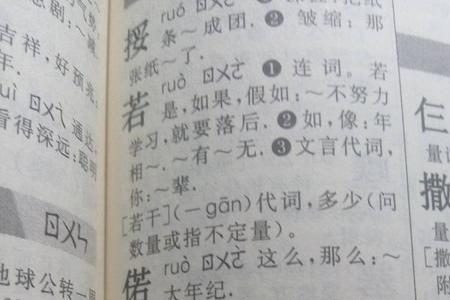 吉祥，好预兆:
年.
ㄖㄨㄟ 通达:
看得深远: 聪明
ㄖㄨㄣ
地球公转一
挼 ruó ㄖㄨㄛˊ
条～成团. ❷ 皱缩: 那
张纸～了.
若 ruò ㄖㄨㄛˋ ❶ 连词。若
是，如果，假如: ～不努力
学习，就要落后. ❷ 如，像: 年
相～. ～有～无. ❸ 文言代词，
你: ～辈.
[若干](－gān)代词，多少(问
数量或指不定量)。
偌 ruò ㄖㄨㄛˋ 这么，那么: ～
大年纪.
仨
量
撒
量
[撒
附